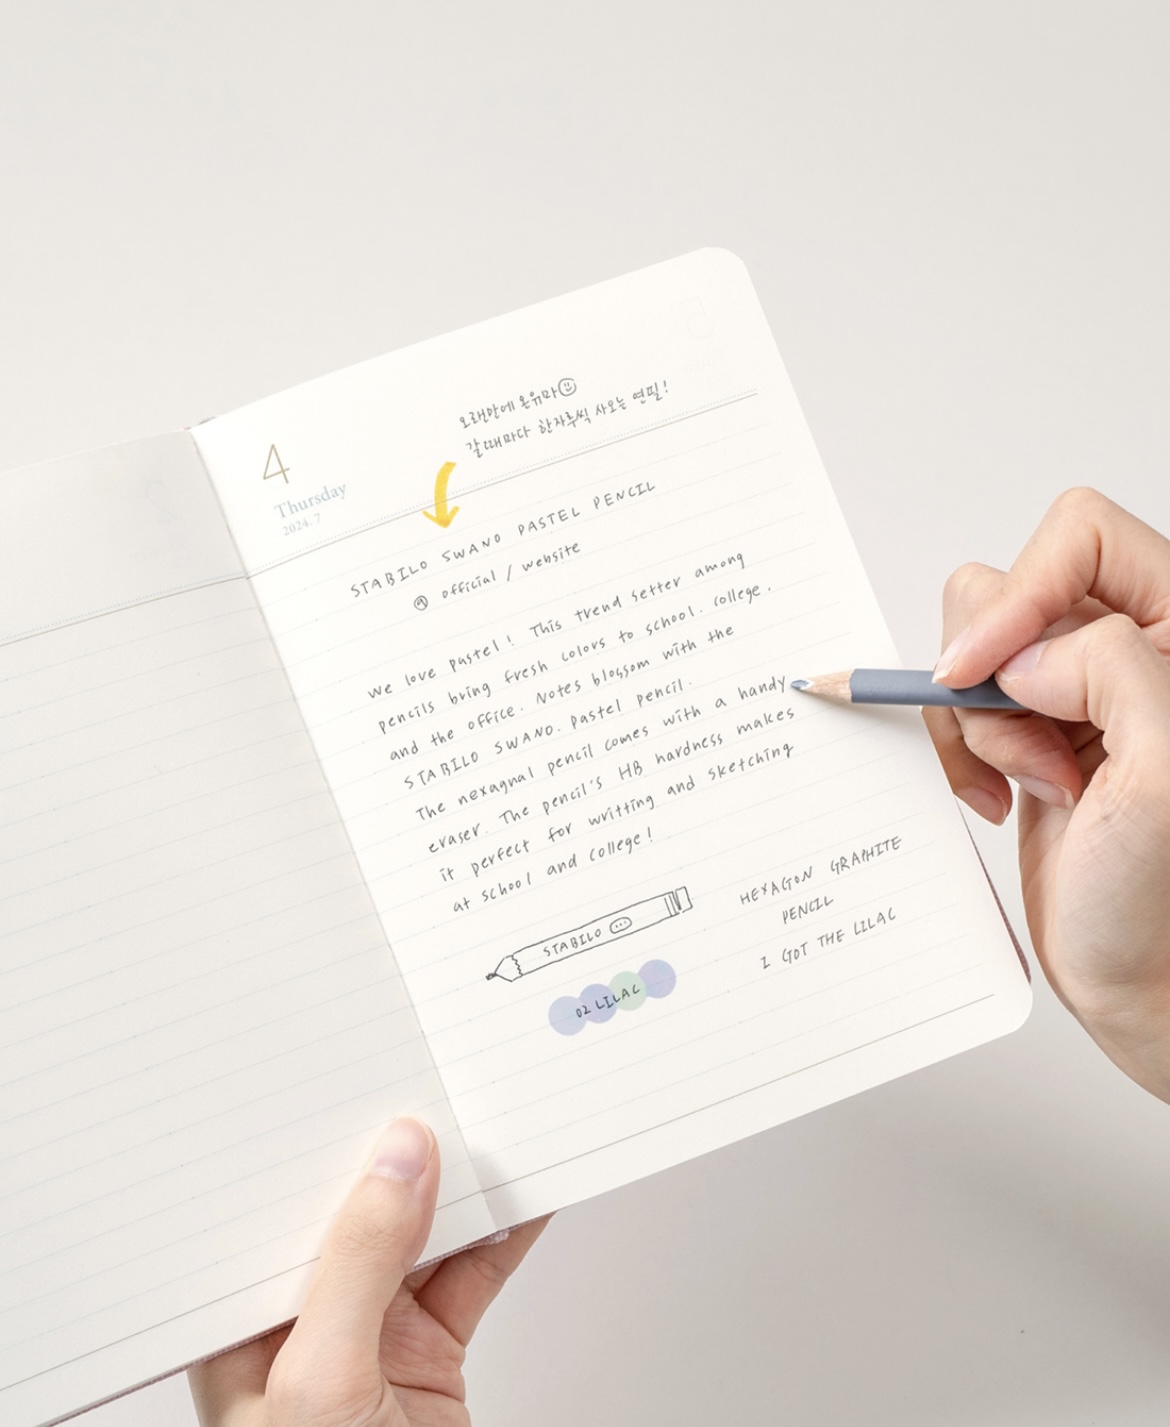 4
Thursday
2024. 7
오랜만에 온유마
갈때마다 한자루씩 사오는 연필!
STABILO SWANO PASTEL PENCIL
official / website
We love pastel! This trend setter among
pencils bring fresh colors to school. college.
and the office. Notes blossom with the
STABILO SWANO. pastel pencil.
The hexagnal pencil comes with a handy
eraser. The pencil's HB hardness makes
it perfect for writting and sketching
at school and college!
STABILO
02 LILAC
HEXAGON GRAPHITE
PENCIL
I GOT THE LILAC